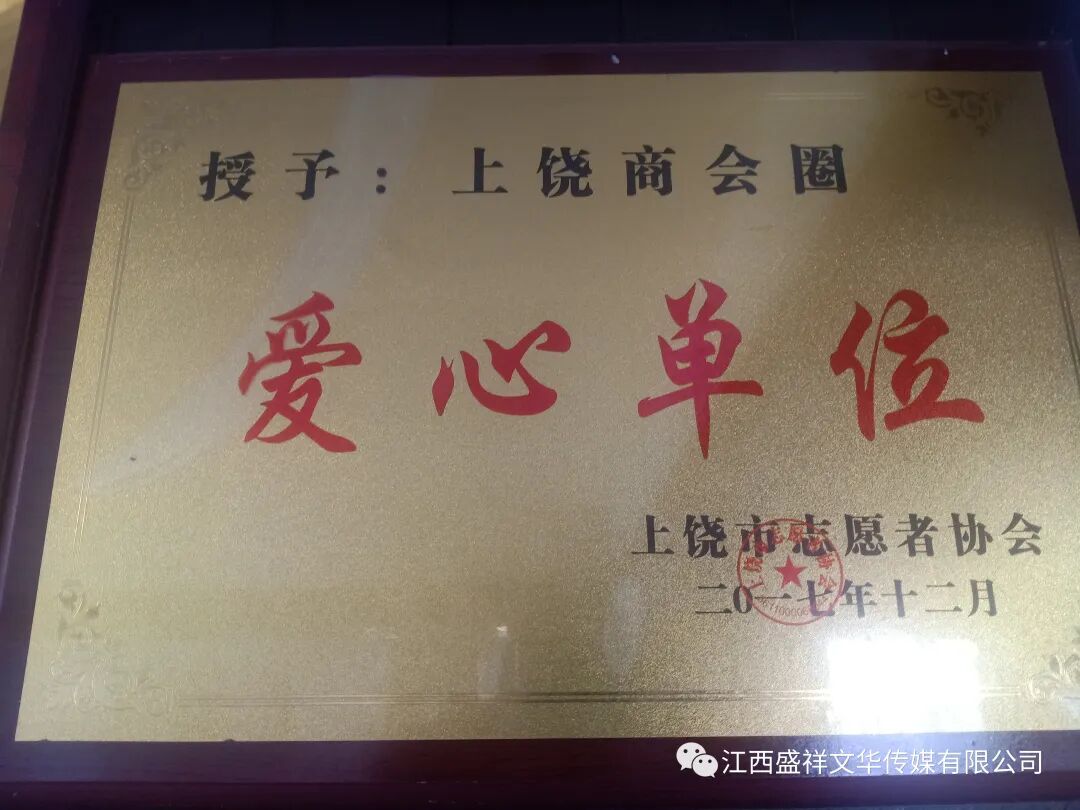 授予：上饶商会圈
爱心单位
上饶市志愿者协会
二0一七年十二月
江西盛祥文华传媒有限公司